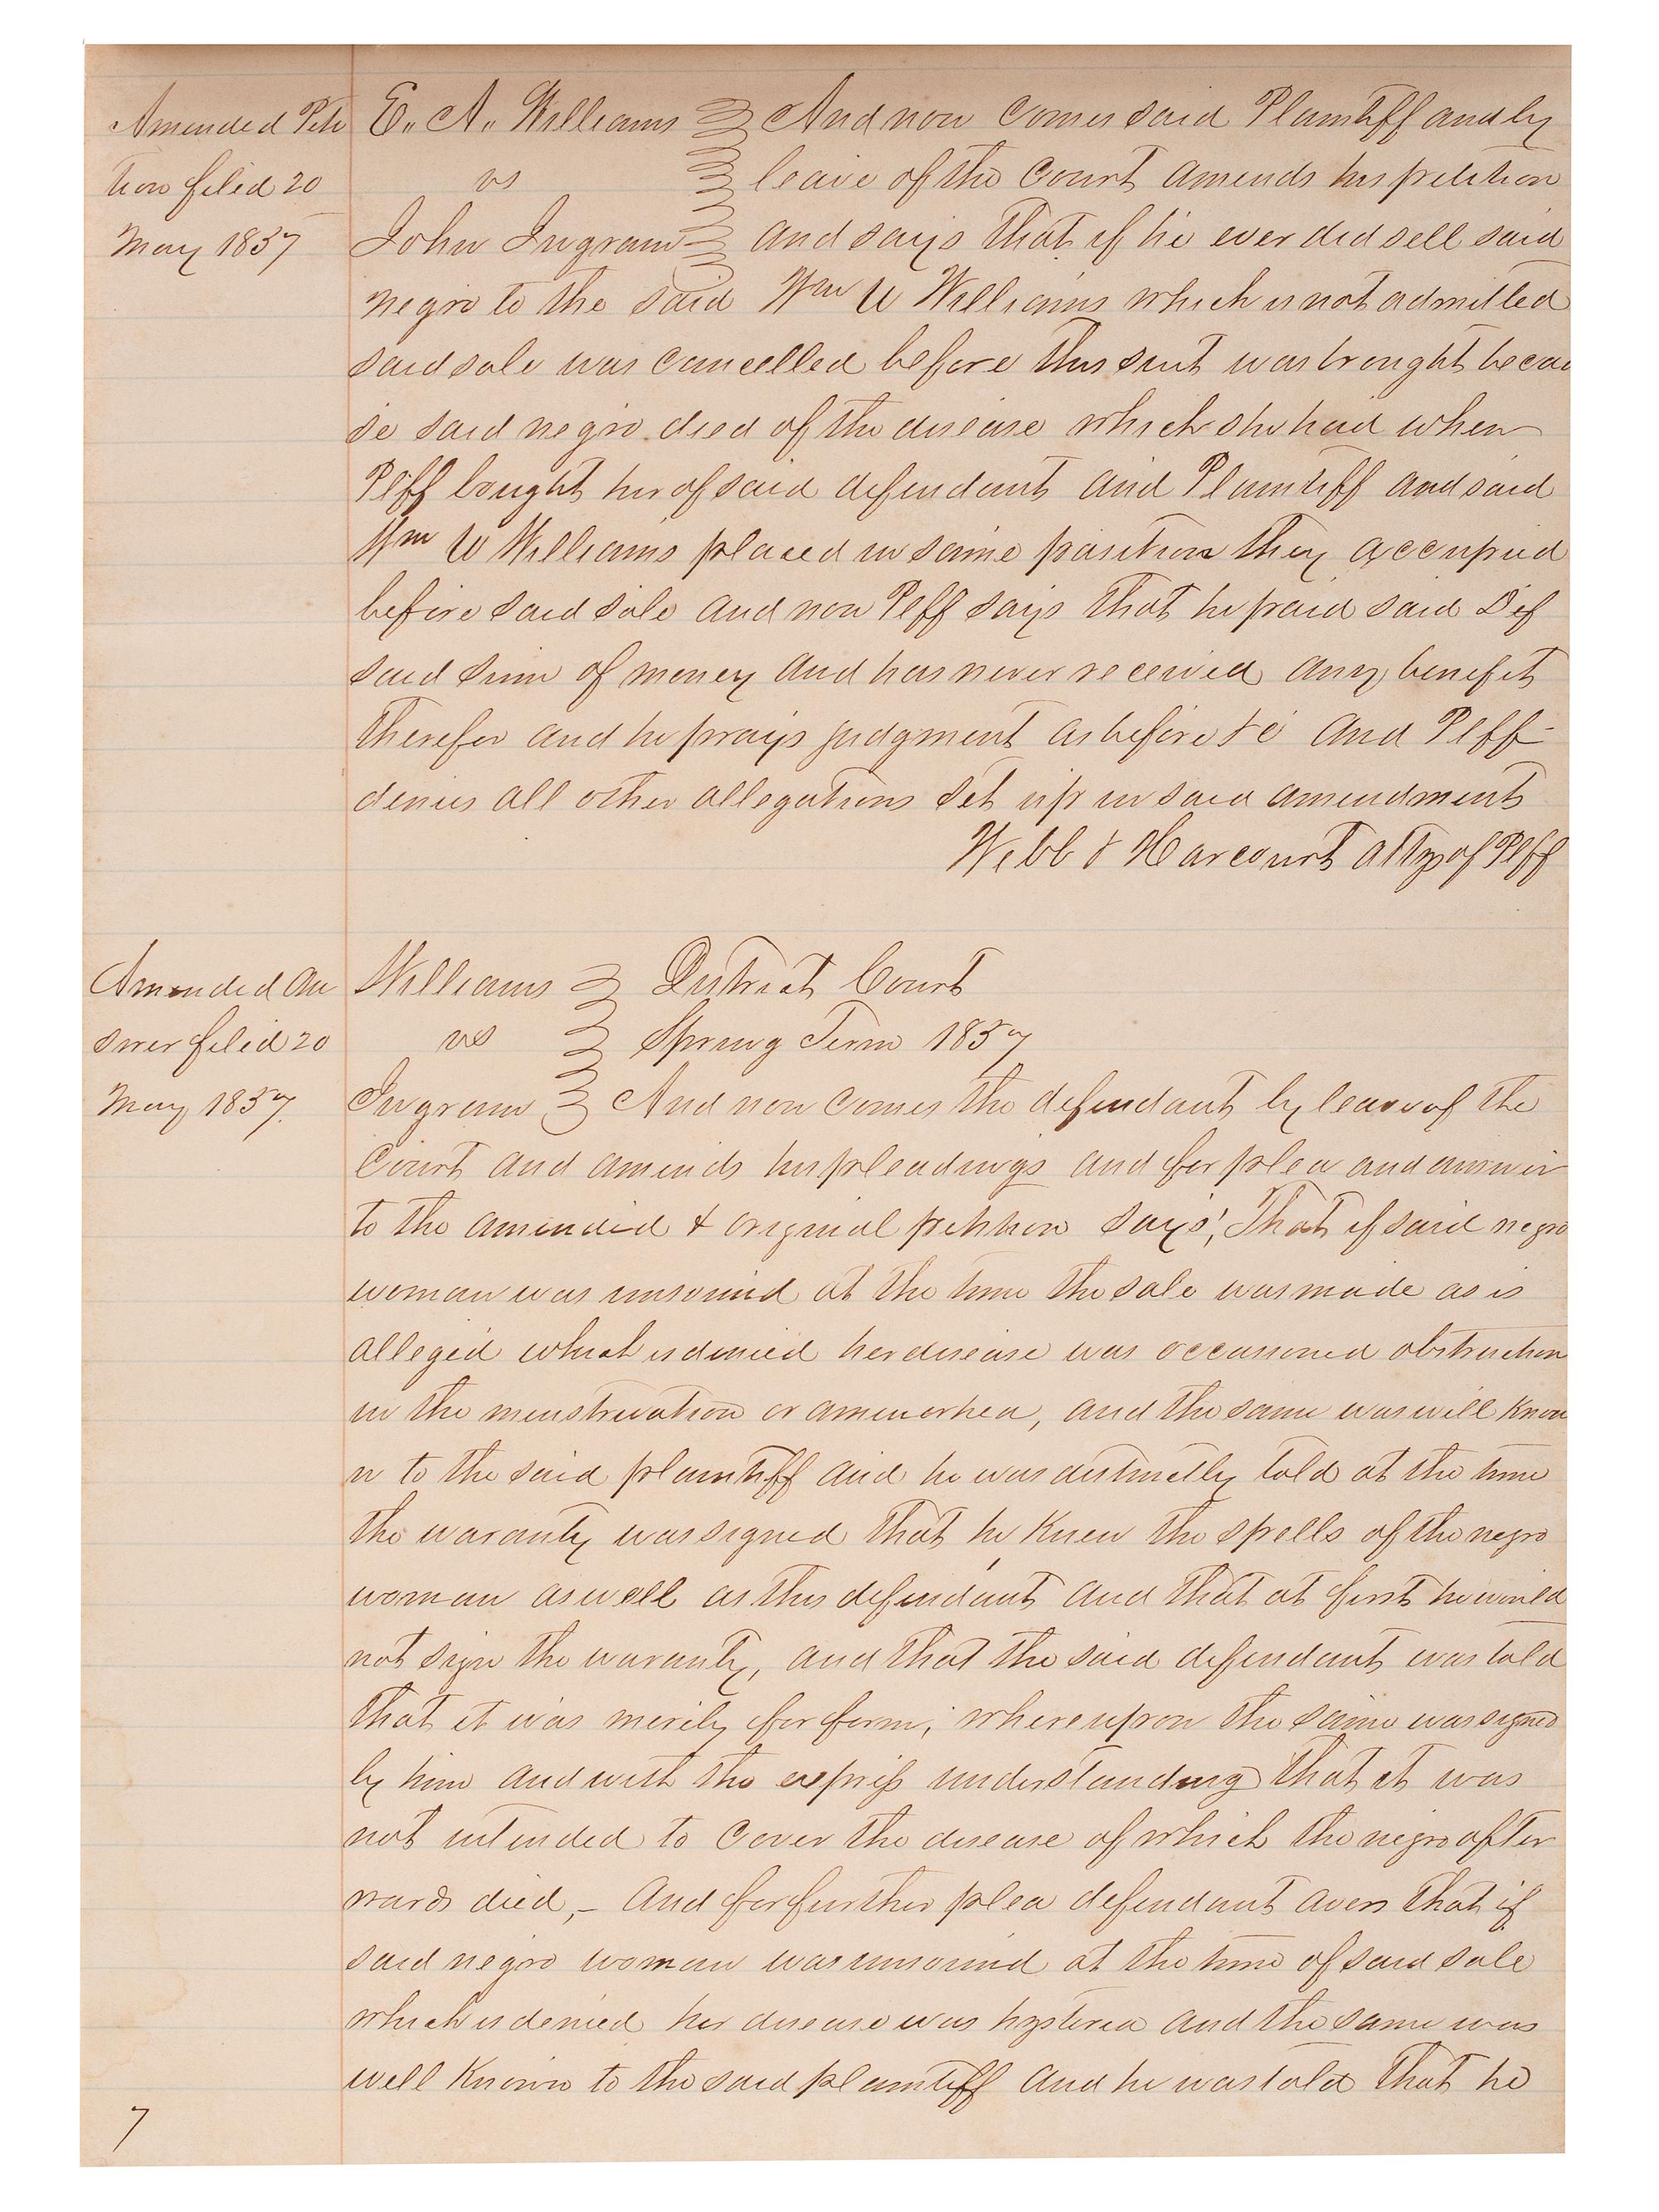 Amended Peti
tion filed 20
May 1857
E. A. Williams And now comes said Plaintiff and by
vs leave of the Court amends his petition
John Ingram and says that if he ever did sell said
negro to the said Wm W Williams which is not admitted
said sale was cancelled before this suit was brought becau
se said negro died of the disease which she had when
Plff bought her of said defendant and Plaintiff and said
Wm W Williams placed in same position they occupied
before said sale and now Plff says that he paid said Def
said sum of money and has never received any benefit
therefor and he prays judgment as before &c And Plff
denies all other allegations set up in said amendment
Webb & Harcourt attys of Plff
Amended An
swer filed 20
May 1857.
Williams District Court
vs Spring Term 1857
Ingram And now comes the defendant by leave of the
Court and amends his pleadings and for plea and answer
to the amended & original petition says; That if said negro
woman was unsound at the time the sale was made as is
alleged which is denied her disease was occasioned obstruction
in the menstruation or amenorhea, and the same was well know
n to the said plaintiff and he was distinctly told at the time
the waranty was signed that he knew the spells of the negro
woman as well as this defendant and that at first he would
not sign the waranty, and that the said defendant was told
that it was merely for form, whereupon the same was signed
by him and with the express understanding that it was
not intended to cover the disease of which the negro after
wards died,- And for further plea defendant avers that if
said negro woman was unsound at the time of said sale
which is denied her disease was hysterea and the same was
well known to the said plaintiff and he was told that he
7